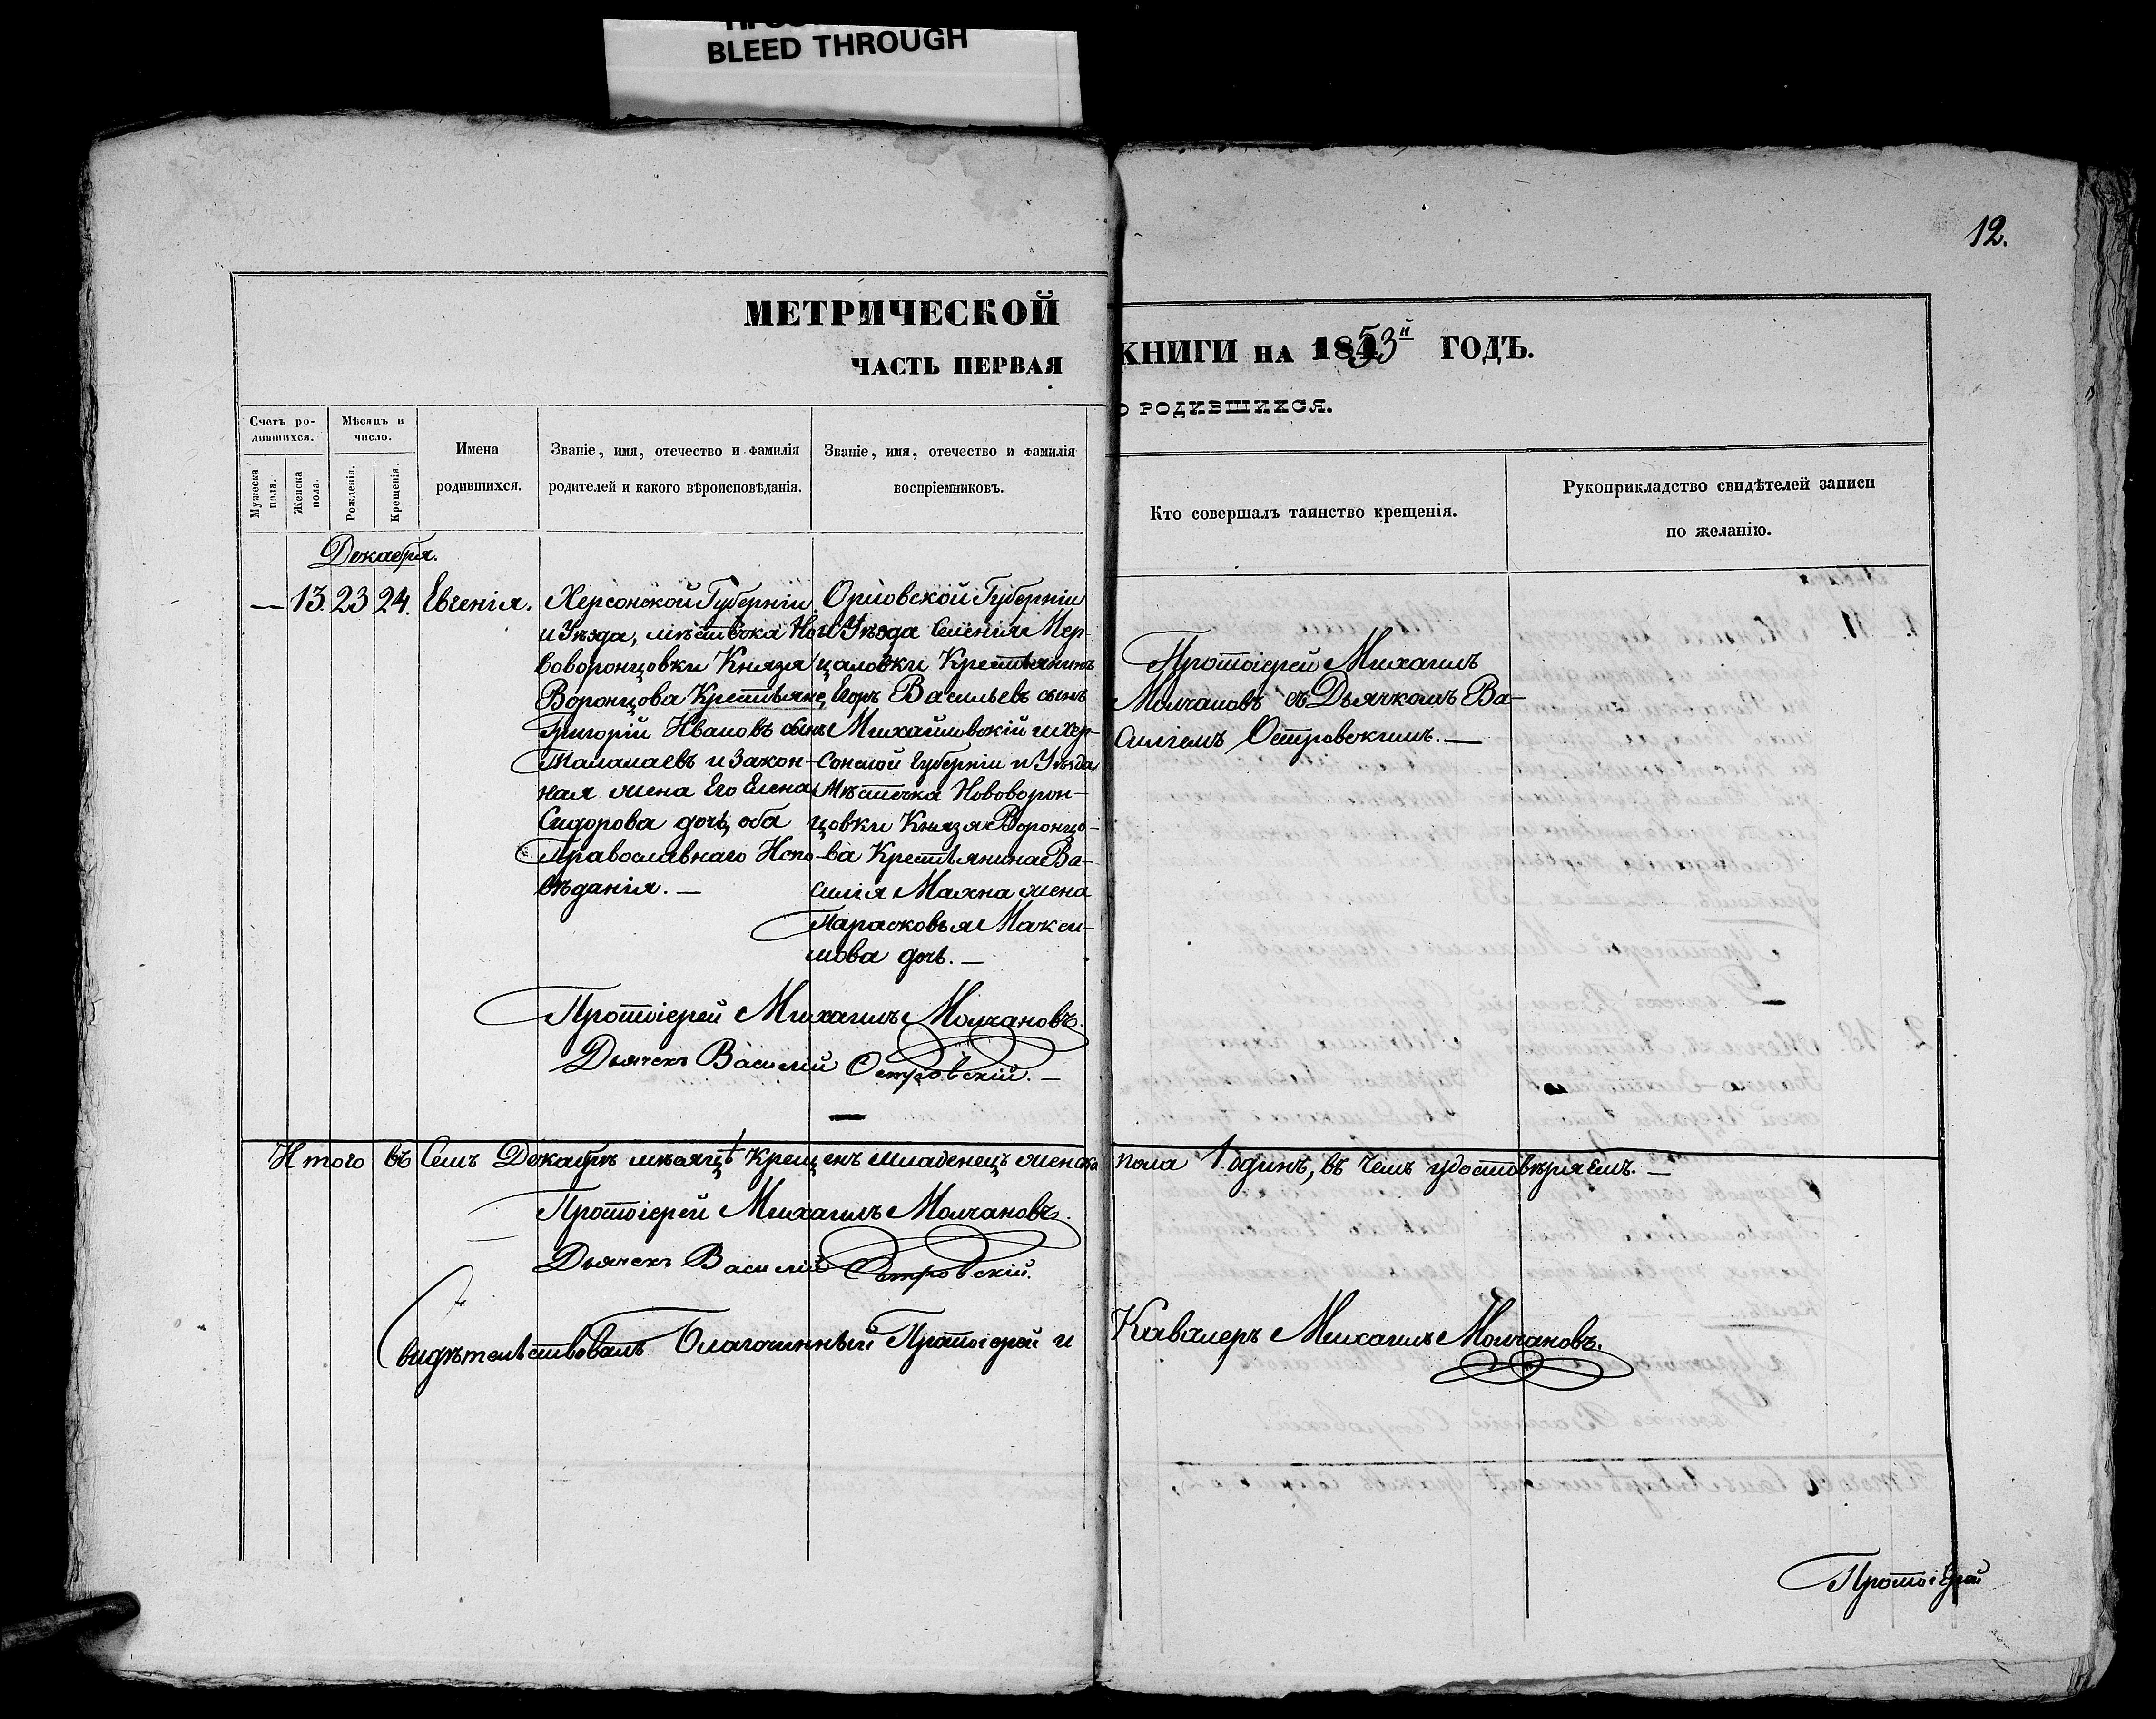 BLEED THROUGH
12.
МЕТРИЧЕСКОЙ
КНИГИ НА 1853й ГОДЪ.
ЧАСТЬ ПЕРВАЯ
О РОДИВШИХСЯ.
Счетъ ро-
дившихся.
Мужеска
пола.
Женска
пола.
Мѣсяцъ и
число.
Рожденія.
Крещенія.
Имена
родившихся.
Званіе, имя, отечество и фамилія
родителей и какого вѣроисповѣданія.
Званіе, имя, отечество и фамилія
воспріемниковъ.
Кто совершалъ таинство крещенія.
Рукоприкладство свидѣтелей записи
по желанію.
Декабря.
— 13. 23 24. Евгенія.
Херсонской Губерніи
и Уѣзда, мѣстечка Но-
воворонцовки Князя
Воронцова Крестьяне,
Григорій Ивановъ сынъ
и закон-
ная жена Его Елена
Сидорова дочь, оба
Православнаго Испо-
вѣданія. —
Орловской Губерніи
и Уѣзда Селенія Мер-
цаловки Крестьянинъ
Егоръ Васильевъ сынъ
Михайловскій и Хер-
сонской Губерніи и Уѣзда
Мѣстечка Нововорон-
цовки Князя Воронцо-
ва Крестьянина Ва-
силія жена
Парасковья Макси-
мова дочь. —
Протоіерей Михаилъ
Молчановъ съ Дьячкомъ Ва-
силіемъ Островскимъ. —
Протоіерей Михаилъ Молчановъ.
Дьячекъ Василій Островскій. —
Итого въ Семъ Декабрѣ мѣсяцѣ Крещенъ младенецъ женска пола 1. одинъ, въ чемъ удостовѣряемъ. —
Протоіерей Михаилъ Молчановъ.
Дьячекъ Василій Островскій.
Свидѣтельствовалъ Благочинный Протоіерей и Кавалеръ Михаилъ Молчановъ.
Протоіерей